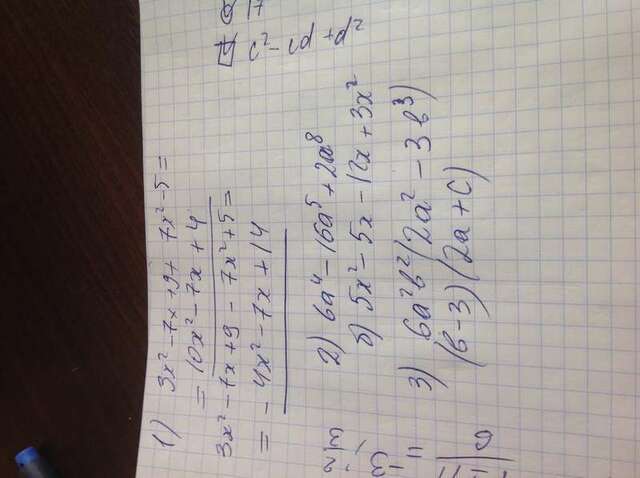 1) 3x² - 7x + 9 + 7x² - 5 =
= 10x² - 7x + 4
3x² - 7x + 9 - 7x² + 5 =
= - 4x² - 7x + 14
2) 6a⁴ - 16a⁵ + 2a⁸
б) 5x² - 5x - 12x + 3x²
3) 6a²b²(2a² - 3b³)
(b-3)(2a+c)
= -3; 2/3
6